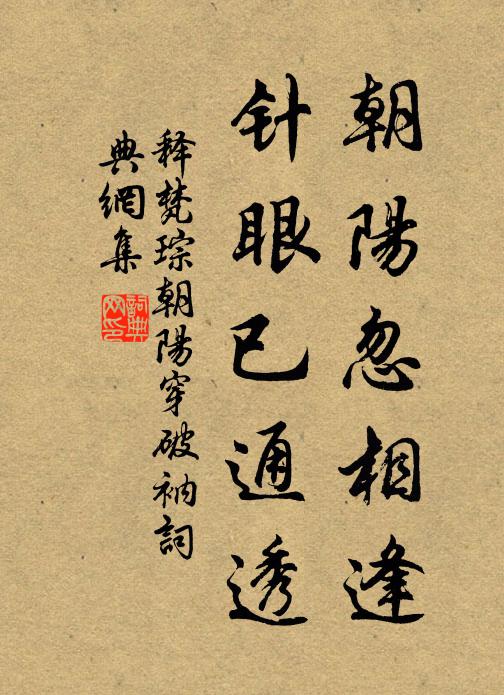 朝陽忽相逢
针眼已通透
释梵琮朝陽穿破衲詞
典網集
詞典网印